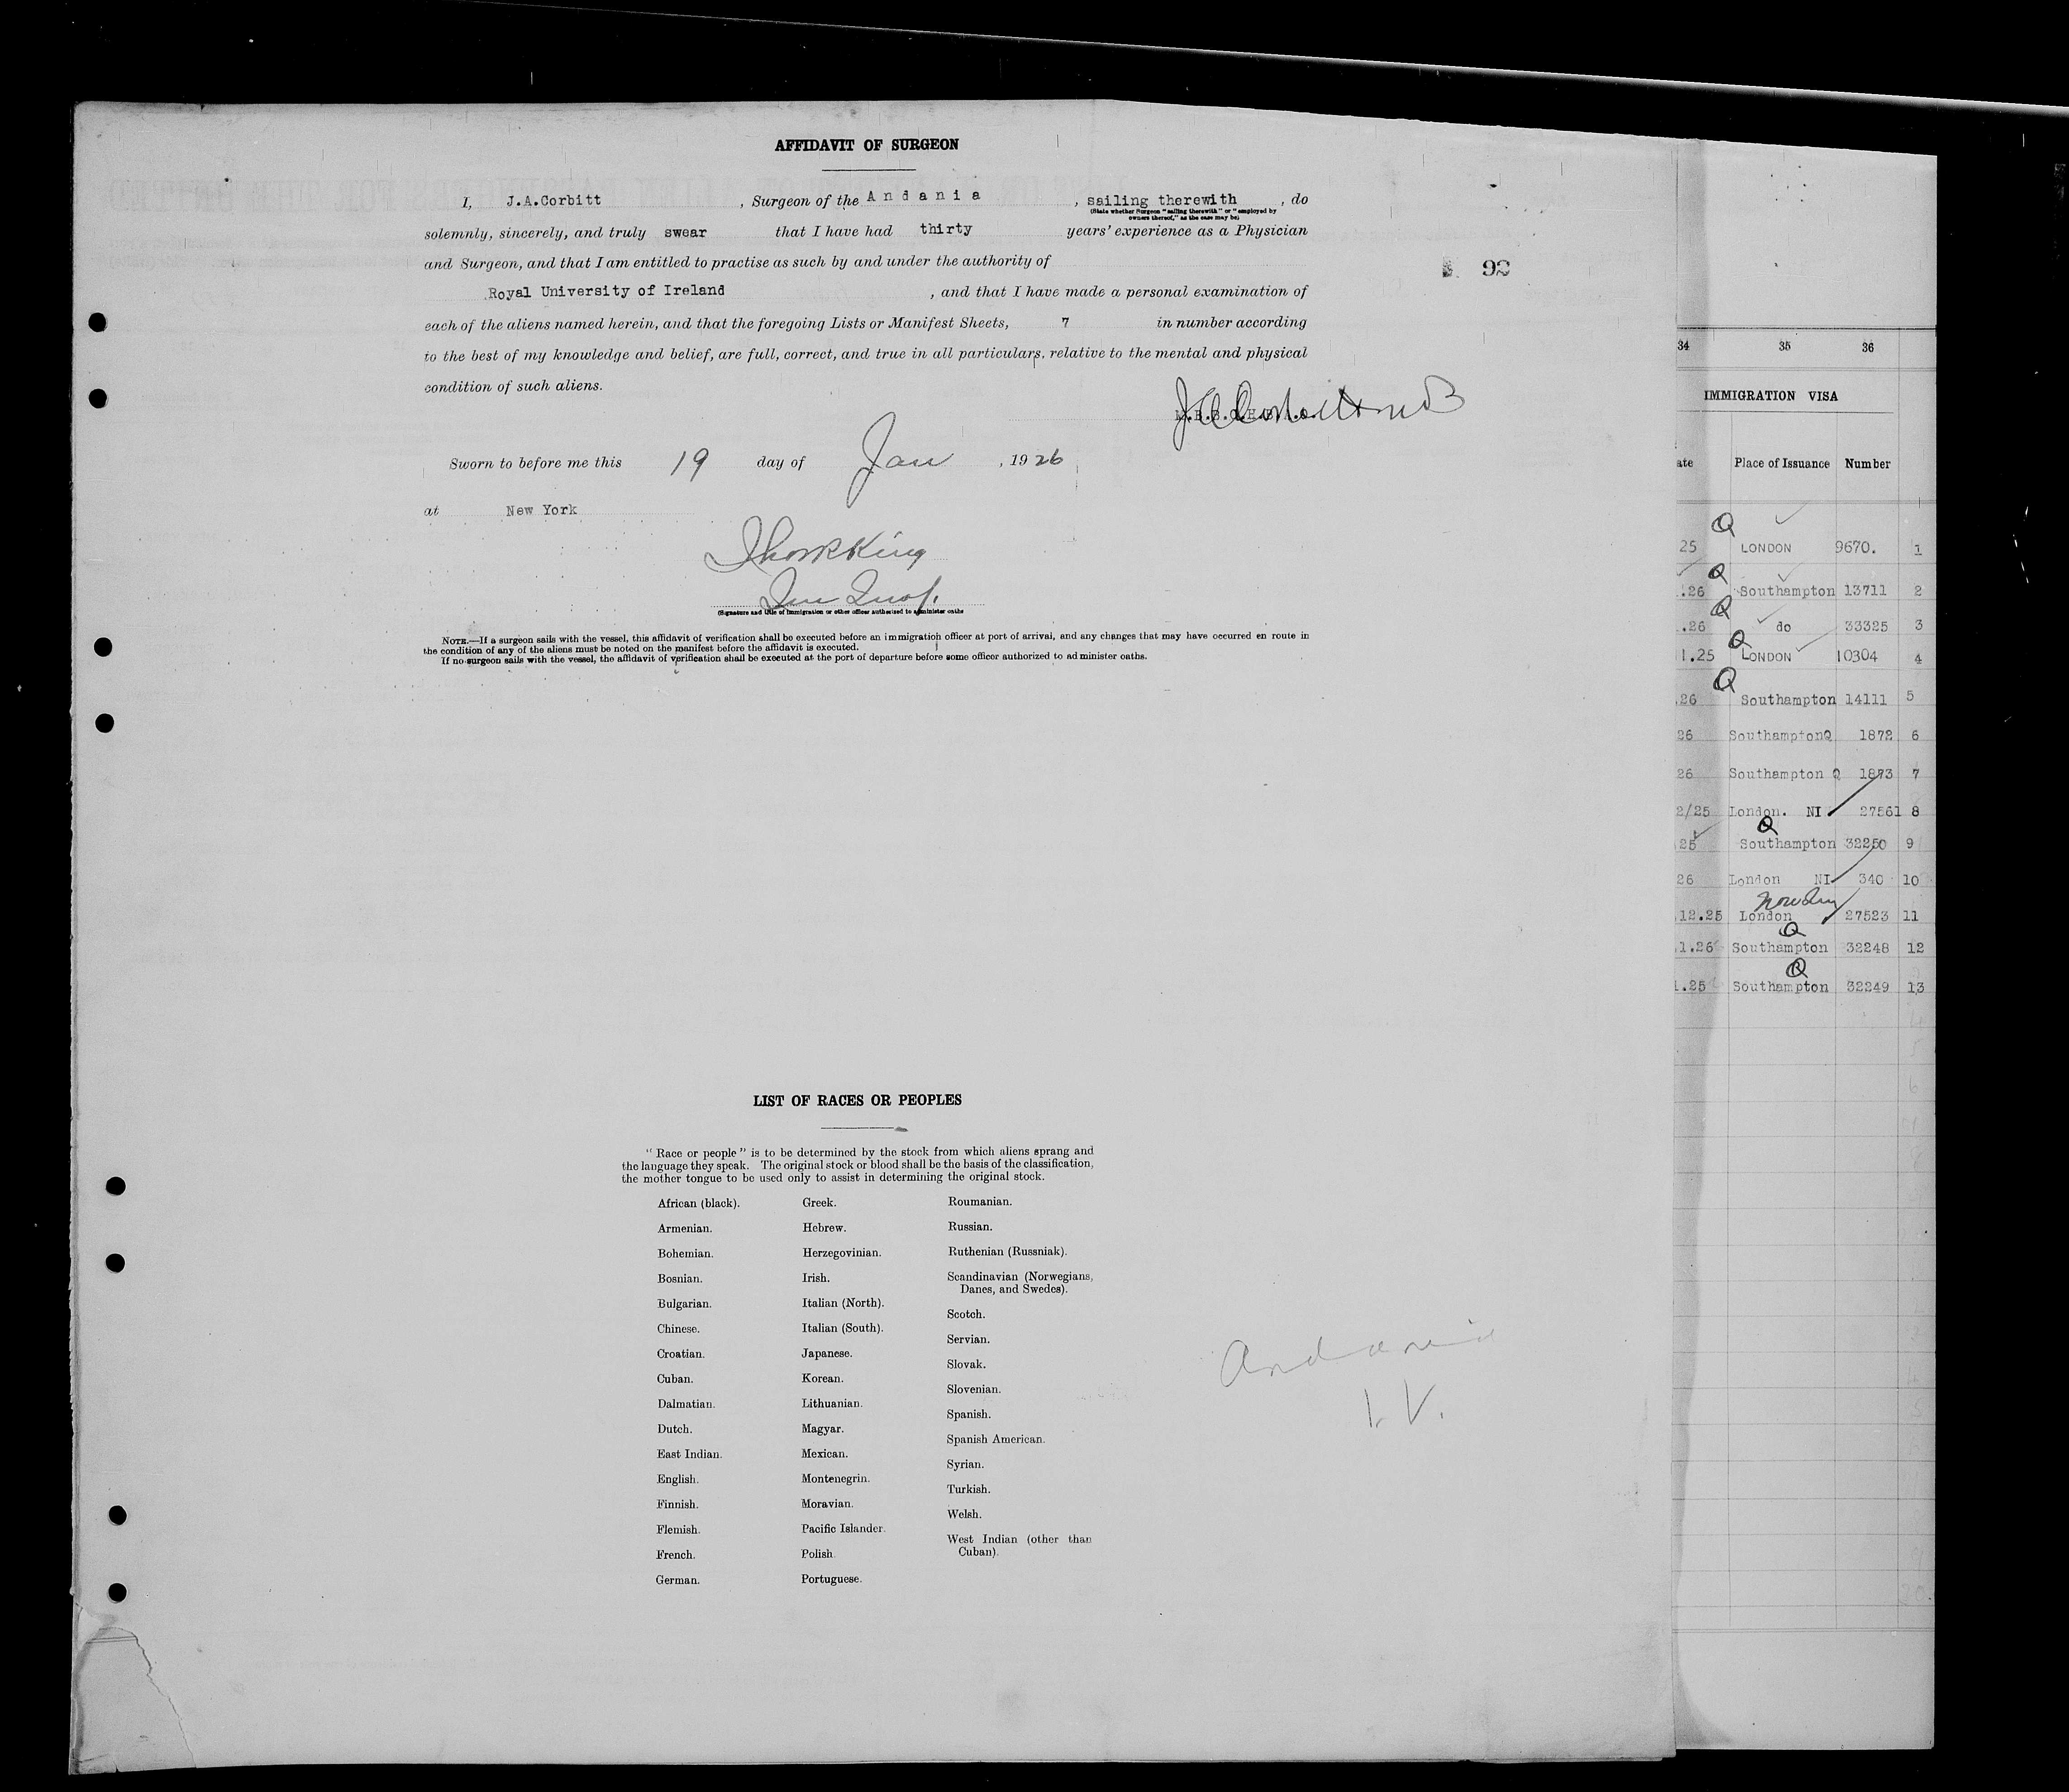 AFFIDAVIT OF SURGEON
I, J.A.Corbitt , Surgeon of the Andania , sailing therewith , do
(State whether Surgeon "sailing therewith" or "employed by
owners thereof," as the case may be)
solemnly, sincerely, and truly swear that I have had thirty years' experience as a Physician
and Surgeon, and that I am entitled to practise as such by and under the authority of
Royal University of Ireland , and that I have made a personal examination of
each of the aliens named herein, and that the foregoing Lists or Manifest Sheets, 7 in number according
to the best of my knowledge and belief, are full, correct, and true in all particulars, relative to the mental and physical
condition of such aliens.
92
J A Corbitt MB
Sworn to before me this 19 day of Jan , 1926
at New York
King
(Signature and title of immigration or other officer authorised to administer oaths
NOTE.—If a surgeon sails with the vessel, this affidavit of verification shall be executed before an immigration officer at port of arrival, and any changes that may have occurred en route in
the condition of any of the aliens must be noted on the manifest before the affidavit is executed.
If no surgeon sails with the vessel, the affidavit of verification shall be executed at the port of departure before some officer authorized to administer oaths.
LIST OF RACES OR PEOPLES
"Race or people" is to be determined by the stock from which aliens sprang and
the language they speak. The original stock or blood shall be the basis of the classification,
the mother tongue to be used only to assist in determining the original stock.
African (black).
Armenian.
Bohemian.
Bosnian.
Bulgarian.
Chinese.
Croatian.
Cuban.
Dalmatian.
Dutch.
East Indian.
English.
Finnish.
Flemish.
French.
German.
Greek.
Hebrew.
Herzegovinian.
Irish.
Italian (North).
Italian (South).
Japanese.
Korean.
Lithuanian.
Magyar.
Mexican.
Montenegrin.
Moravian.
Pacific Islander.
Polish.
Portuguese.
Roumanian.
Russian.
Ruthenian (Russniak).
Scandinavian (Norwegians,
Danes, and Swedes).
Scotch.
Servian.
Slovak.
Slovenian.
Spanish.
Spanish American.
Syrian.
Turkish.
Welsh.
West Indian (other than
Cuban).
Andania
I. V.
34 35 36
IMMIGRATION VISA
ate Place of Issuance Number
Q
25 LONDON 9670. 1
Q
.26 Southampton 13711 2
Q
.26 do 33325 3
Q
1.25 LONDON 10304 4
Q
.26 Southampton 14111 5
26 Southampton Q 1872 6
26 Southampton Q 1873 7
2/25 London. NI 27561 8
Q
25 Southampton 32250 9
26 London NI 340 10
12.25 London 27523 11
Q
1.26 Southampton 32248 12
Q
1.25 Southampton 32249 13